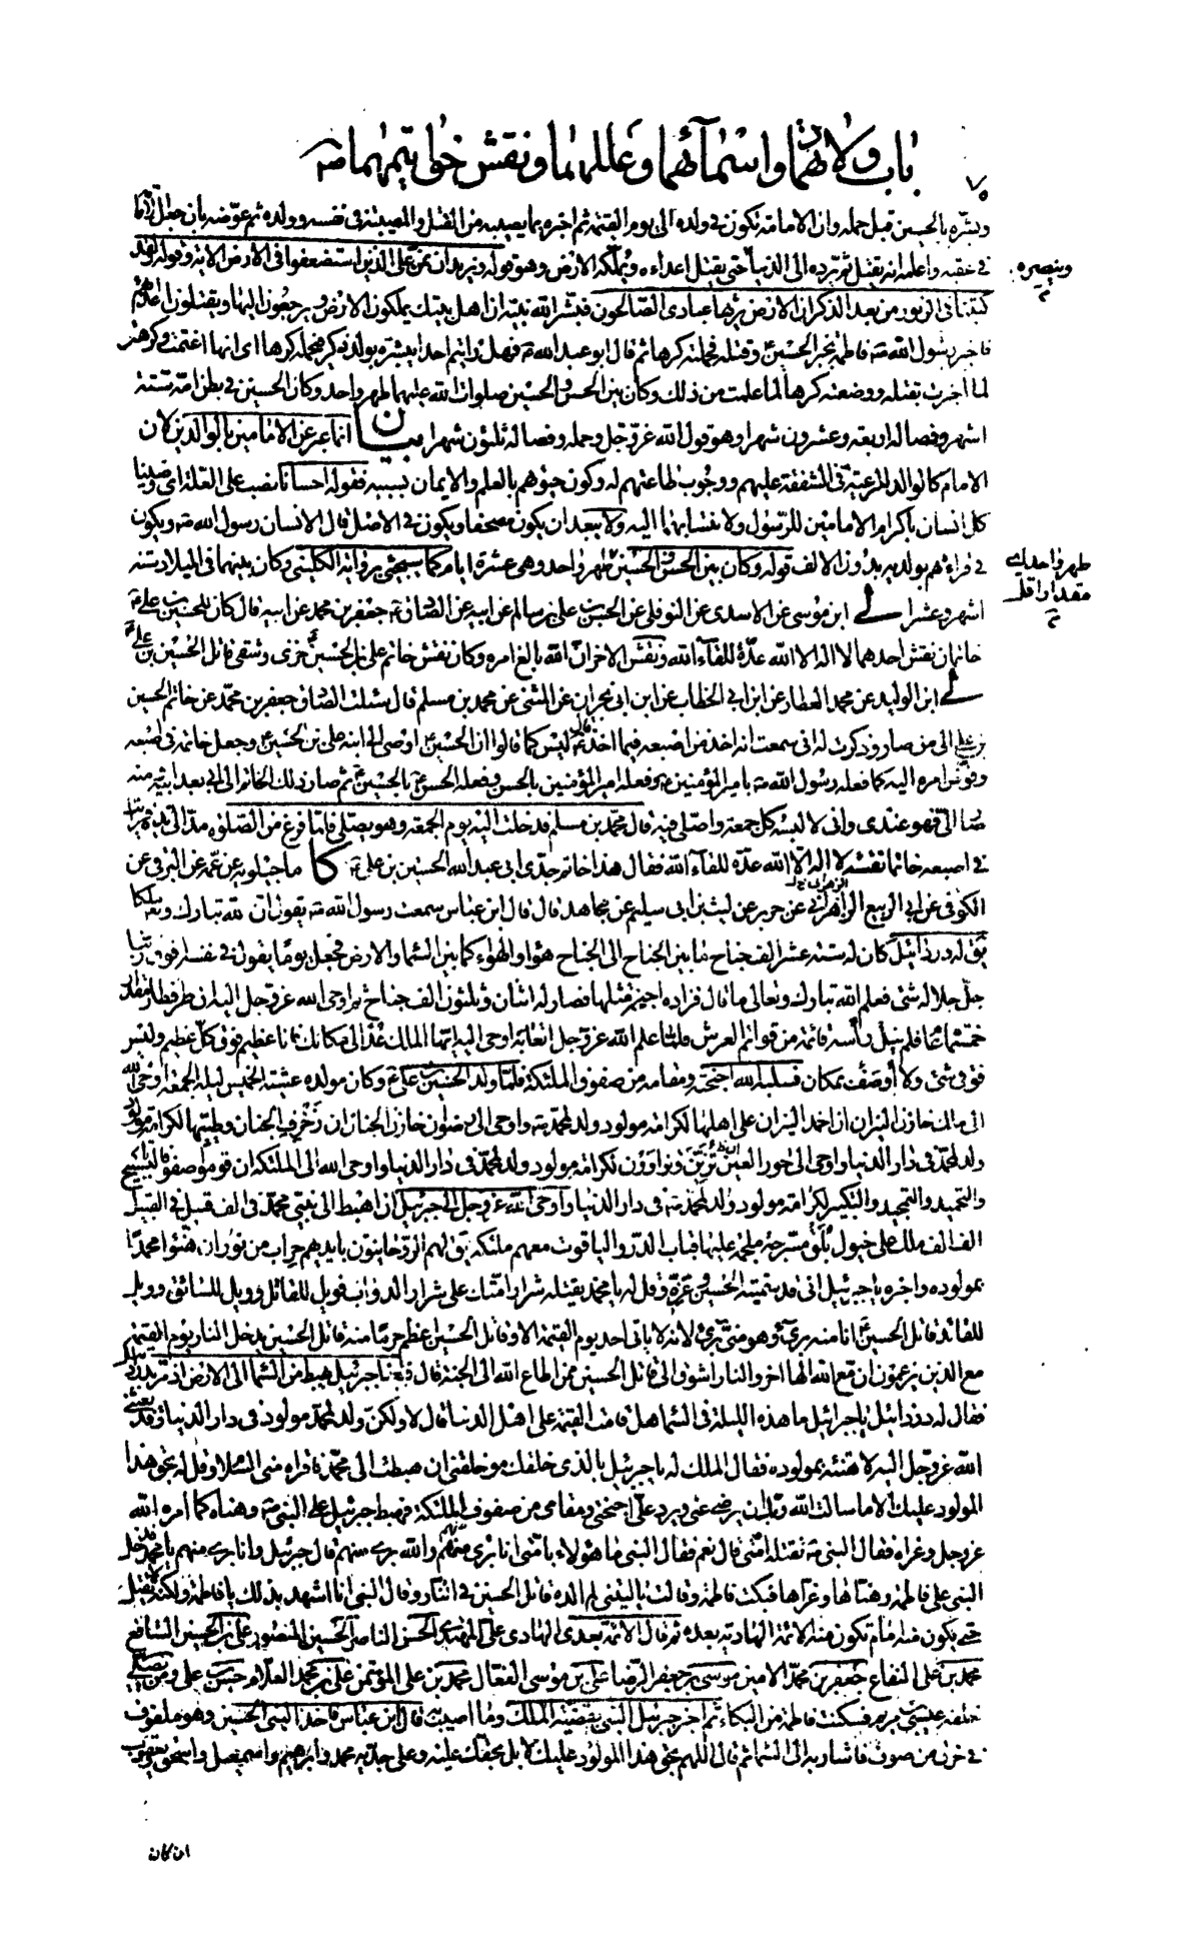 باب ولادتهما واسمائهما وعللهما ونقش خواتيمهما صه
٧٥
وبشّره بالحسين قبل حمله وان الامامة تكون في ولده الى يوم القيمة ثم اخبره بما يصيبه من القتل والمصيبة في نفسه وولده ثم عوّضه بان جعل الامامة
في عقبه واعلمه انه يقتل ثم يردّه الى الدنيا حتى يقتل اعداءه ويملّكه الارض وهو قوله ونريد ان نمنّ على الذين استضعفوا في الارض الاية وقوله ولقد
وينصره
كتبنا في الزبور من بعد الذكر ان الارض يرثها عبادي الصالحون فبشر الله نبيّه ان اهل بيتك يملكون الارض ويرجعون اليها ويقتلون اعداءهم
فاخبر رسول الله صه فاطمة بخبر الحسين وقتله فحملته كرها ثم قال ابو عبد الله فهل رايتم احدا يبشّره بولد ذكر فيحمله كرها اي انها اغتمت وكرهت
لما اخبرت بقتله ووضعته كرها لما علمت من ذلك وكان بين الحسن والحسين صلوات الله عليهما طهر واحد وكان الحسين في بطن امّه ستة
اشهر وفصاله اربعة وعشرون شهرا وهو قول الله عزّ وجل وحمله وفصاله ثلثون شهرا بيان انما عبر عن الامامين بالوالدين لان
الامام كالوالد للرعية في الشفقة عليهم ووجوب طاعتهم له وكون حيوتهم بالعلم والايمان بسببه فقوله احسانا نصب على العلة اي وصّينا
كل انسان باكرام الامامين للرسول ولانتسابهما اليه ولا يبعد ان يكون مصحفا ويكون في الاصل قال الانسان رسول الله صه ويكون
في قراءتهم بولديه بدون الالف قوله وكان بين الحسن والحسين طهر واحد وهي عشرة ايام كما سيجيء برواية الكليني وكان بينهما في الميلاد ستة
طهر واحد اي مقدار اقل
اشهر وعشرا لي ابن موسى عن الاسدي عن النوفلي عن الحسن بن علي بن سالم عن ابيه عن الصادق جعفر بن محمد عن ابيه قال كان للحسين بن علي ع
خاتمان نقش احدهما لا اله الا الله عدّة للقاء الله ونقش الاخر انّ الله بالغ امره وكان نقش خاتم علي بن الحسين خزي وشقي قاتل الحسين بن علي
لي ابن الوليد عن محمد العطار عن ابن ابي الخطاب عن ابن ابي نجران عن المثنى عن محمد بن مسلم قال سئلت الصادق جعفر بن محمّد عن خاتم الحسين
بن علي الى من صار وذكرت له اني سمعت انه اخذ من اصبعه فيما اخذ قال ليس كما قالوا ان الحسين اوصى الى ابنه علي بن الحسين وجعل خاتمه في اصبعه
وفوّض امره اليه كما فعله رسول الله صه بامير المؤمنين وفعله امير المؤمنين بالحسن وفعله الحسن بالحسين ثم صار ذلك الخاتم الى ابي بعد ابيه ومنه
صار اليّ فهو عندي واني لالبسه كل جمعة واصلي فيه قال محمّد بن مسلم فدخلت اليه يوم الجمعة وهو يصلي فلمّا فرغ من الصلوة مدّ اليّ يده فرايت
في اصبعه خاتما نقشه لا اله الا الله عدّة للقاء الله فقال هذا خاتم جدّي ابي عبد الله الحسين بن علي كا ماجيلويه عن عمّه عن البرقي عن
الكوفي عن ابي الربيع الزهراني عن حريز عن ليث بن ابي سليم عن مجاهد قال قال ابن عباس سمعت رسول الله صه يقول ان لله تبارك وتعالى ملكا
يق له دردائيل كان له ستة عشر الف جناح ما بين الجناح الى الجناح هواء والهواء كما بين السماء والارض فجعل يوما يقول في نفسه افوق ربّنا
جلّ جلاله شيء فعلم الله تبارك وتعالى ما قال فزاده اجنحة مثلها فصار له اثنان وثلثون الف جناح ثم اوحى الله عزّ وجل اليه ان طر فطار مقدار
خمسمائة عام فلم ينل راسه قائمة من قوائم العرش فلما علم الله عزّ وجل اتعابه اوحى اليه ايّها الملك عُد الى مكانك فانا عظيم فوق كلّ عظيم وليس
فوقي شيء ولا اوصف بمكان فسلبه الله اجنحته ومقامه من صفوف الملئكة فلمّا ولد الحسين بن علي ع وكان مولده عشية الخميس ليلة الجمعة اوحى الله
الى مالك خازن النيران ان اخمد النيران على اهلها لكرامة مولود ولد لمحمّد صه واوحى الى رضوان خازن الجنان ان زخرف الجنان وطيّبها لكرامة مولود
ولد لمحمّد في دار الدنيا واوحى الى حور العين ان تزيّنّ وتزاورن لكرامة مولود ولد لمحمّد في دار الدنيا واوحى الله الى الملئكة ان قوموا صفوفا بالتسبيح
والتحميد والتمجيد والتكبير لكرامة مولود ولد لمحمّد صه في دار الدنيا واوحى الله عزّ وجل الى جبرئيل ان اهبط الى نبيّي محمّد في الف قبيل في القبيل
الف الف ملك على خيول بلق مسرّجة ملجمة عليها قباب الدرّ والياقوت معهم ملئكة يق لهم الروحانيون بايديهم حراب من نور ان هنّئوا محمدّا
بمولوده واخبره يا جبرئيل اني قد سمّيته الحسين وعزّه وقل له يا محمد يقتله شرار امّتك على شرار الدواب فويل للقاتل وويل للسائق وويل
للقائد قاتل الحسين انا منه بريء وهو منّي بريء لانه لا ياتي احد يوم القيمة الا وقاتل الحسين اعظم جرما منه قاتل الحسين يدخل النار يوم القيمة
مع الذين يزعمون ان مع الله الها اخر والنار اشوق الى قاتل الحسين ممن اطاع الله الى الجنة قال فبينا جبرئيل يهبط من السماء الى الارض اذ مرّ بدردائيل
فقال له دردائيل يا جبرائيل ما هذه الليلة في السماء هل قامت القيمة على اهل الدنيا قال لا ولكن ولد لمحمّد مولود في دار الدنيا وقد بعثني
الله عزّ وجل اليه لاهنّئه بمولوده فقال الملك له يا جبرئيل بالذي خلقك وخلقني ان هبطت الى محمّد فاقراه منّي السلام وقل له بحق هذا
المولود عليك الا ما سالت الله ربّك ان يرضى عنّي ويردّ عليّ اجنحتي ومقامي من صفوف الملئكة فهبط جبرئيل على النبي صه وهنّاه كما امره الله
عزّ وجل وعزّاه فقال النبي صه تقتله امّتي قال نعم فقال النبي ما هؤلاء بامّتي انا بريء منهم والله بريء منهم قال جبرئيل وانا بريء منهم يا محمّد فدخل
النبي على فاطمة وهنّاها وعزّاها فبكت فاطمة وقالت يا ليتني لم الده قاتل الحسين في النار وقال النبي انا اشهد بذلك يا فاطمة ولكنه لا يقتل
حتى يكون منه امام تكون منه الائمة الهادية بعده ثم قال الائمة بعدي الهادي علي المهتدي الحسن الناصر الحسين المنصور علي بن الحسين الشافع
محمد بن علي النفاع جعفر بن محمّد الامين موسى بن جعفر الرضا علي بن موسى الفعال محمد بن علي المؤتمن علي بن محمد العلام حسن بن علي ومن يصلّي
خلفه عيسى بن مريم فسكنت فاطمة من البكاء ثم اخبر جبرئيل النبي بقضية الملك وما اصيب به قال ابن عباس فاخذ النبي الحسين وهو ملفوف
في خرق من صوف فاشار به الى السماء ثم قال اللهم بحق هذا المولود عليك لا بل بحقك عليه وعلى جدّيه محمد وابرهيم واسمعيل واسحق ويعقوب
ان كان